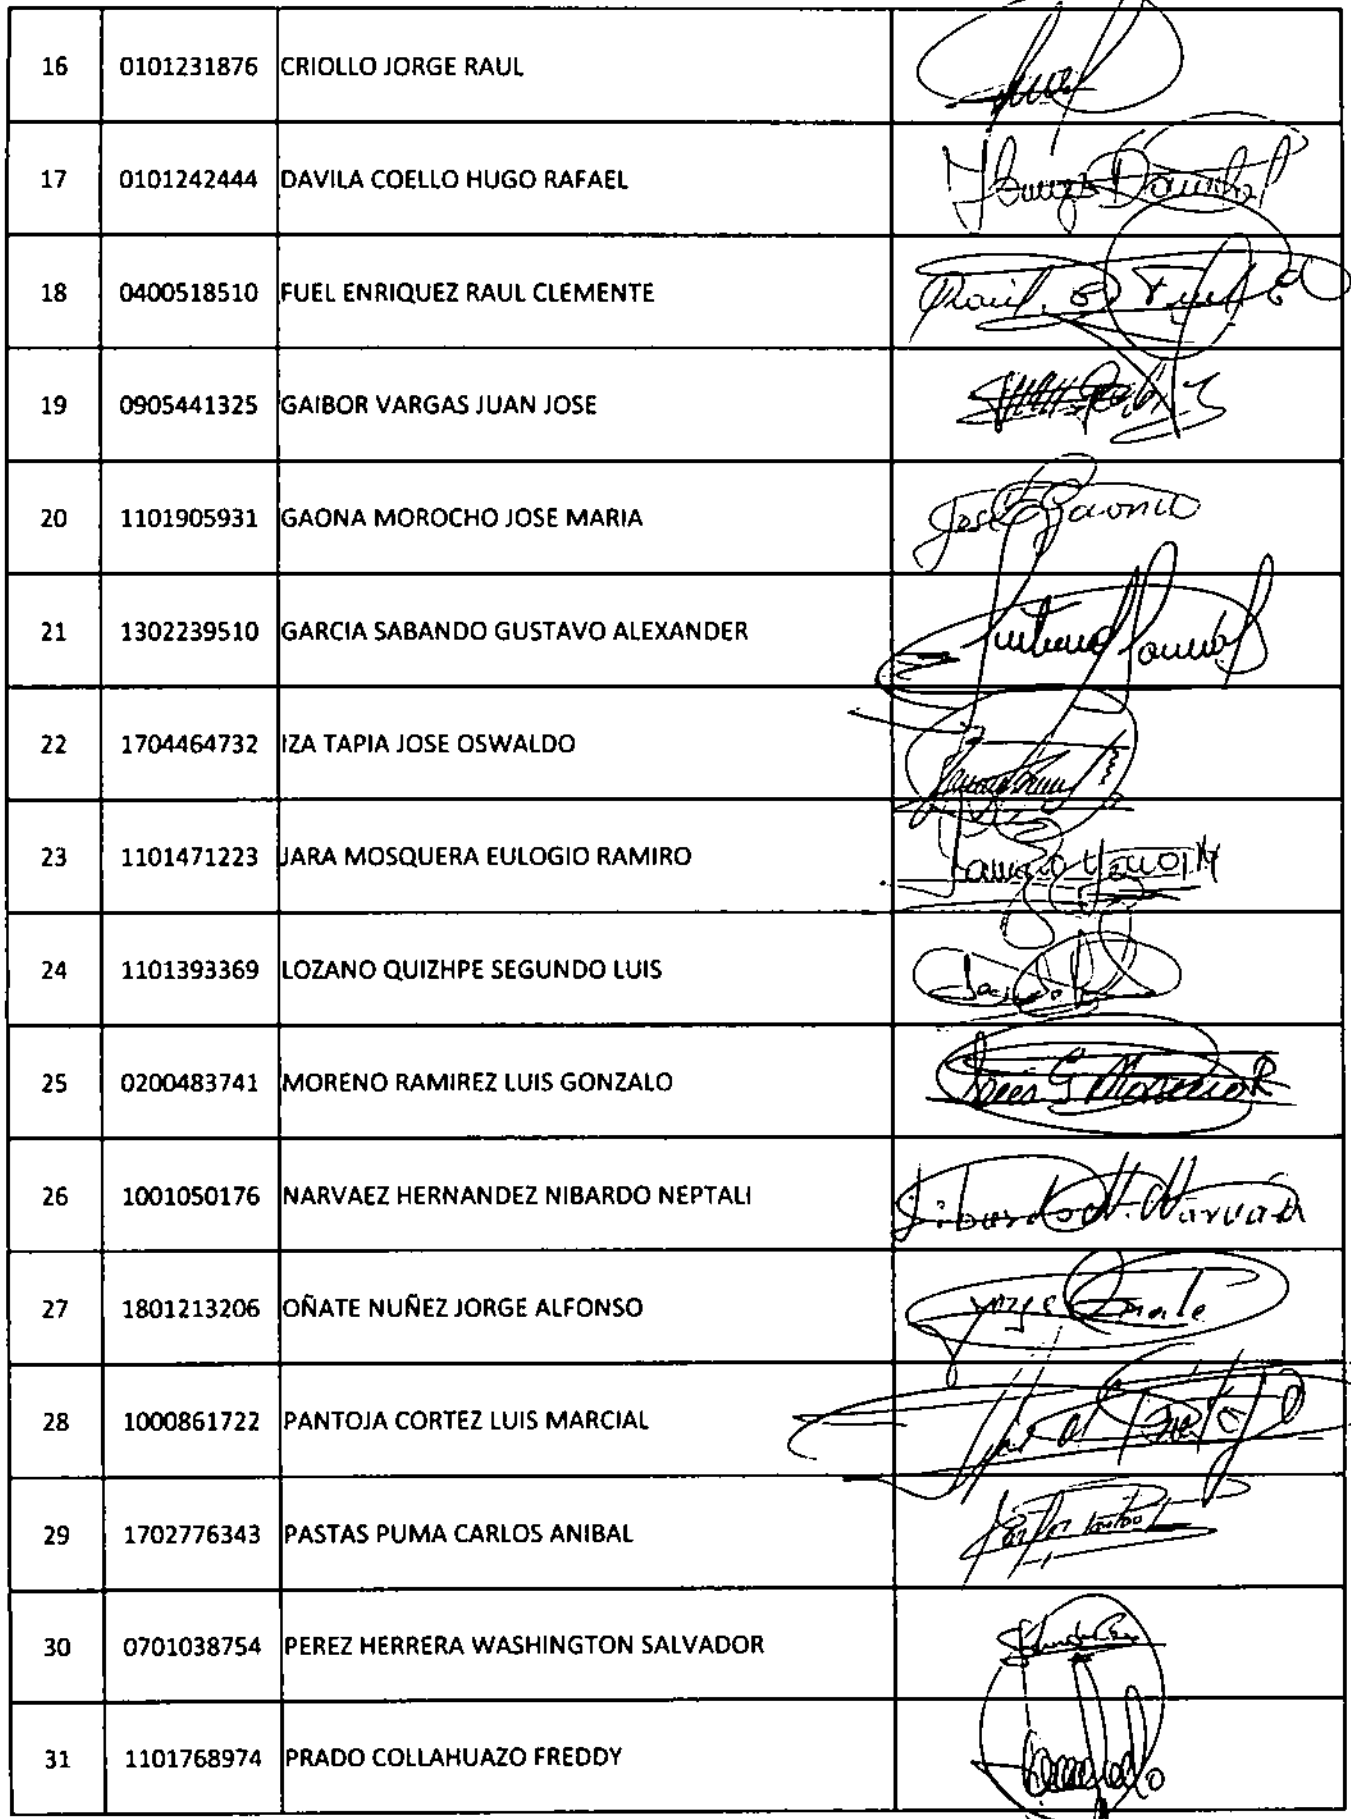 16 0101231876 CRIOLLO JORGE RAUL
17 0101242444 DAVILA COELLO HUGO RAFAEL
18 0400518510 FUEL ENRIQUEZ RAUL CLEMENTE
19 0905441325 GAIBOR VARGAS JUAN JOSE
20 1101905931 GAONA MOROCHO JOSE MARIA Jose Gaona
21 1302239510 GARCIA SABANDO GUSTAVO ALEXANDER
22 1704464732 IZA TAPIA JOSE OSWALDO
23 1101471223 JARA MOSQUERA EULOGIO RAMIRO
24 1101393369 LOZANO QUIZHPE SEGUNDO LUIS
25 0200483741 MORENO RAMIREZ LUIS GONZALO Luis G Moreno R
26 1001050176 NARVAEZ HERNANDEZ NIBARDO NEPTALI Nibardo N. Narváez
27 1801213206 OÑATE NUÑEZ JORGE ALFONSO Jorge Oñate
28 1000861722 PANTOJA CORTEZ LUIS MARCIAL
29 1702776343 PASTAS PUMA CARLOS ANIBAL
30 0701038754 PEREZ HERRERA WASHINGTON SALVADOR
31 1101768974 PRADO COLLAHUAZO FREDDY